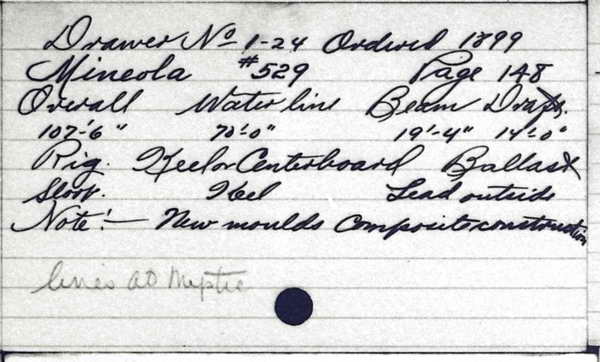 Drawer No 1-24 Ordered 1899
Mineola #529 Page 148
Overall Waterline Beam Draft.
107'-6" 70'-0" 19'-4" 14'-0"
Rig. Keel or Centerboard Ballast
Sloop. Keel Lead outside
Note:— New moulds Composite construction
lines at Mystic